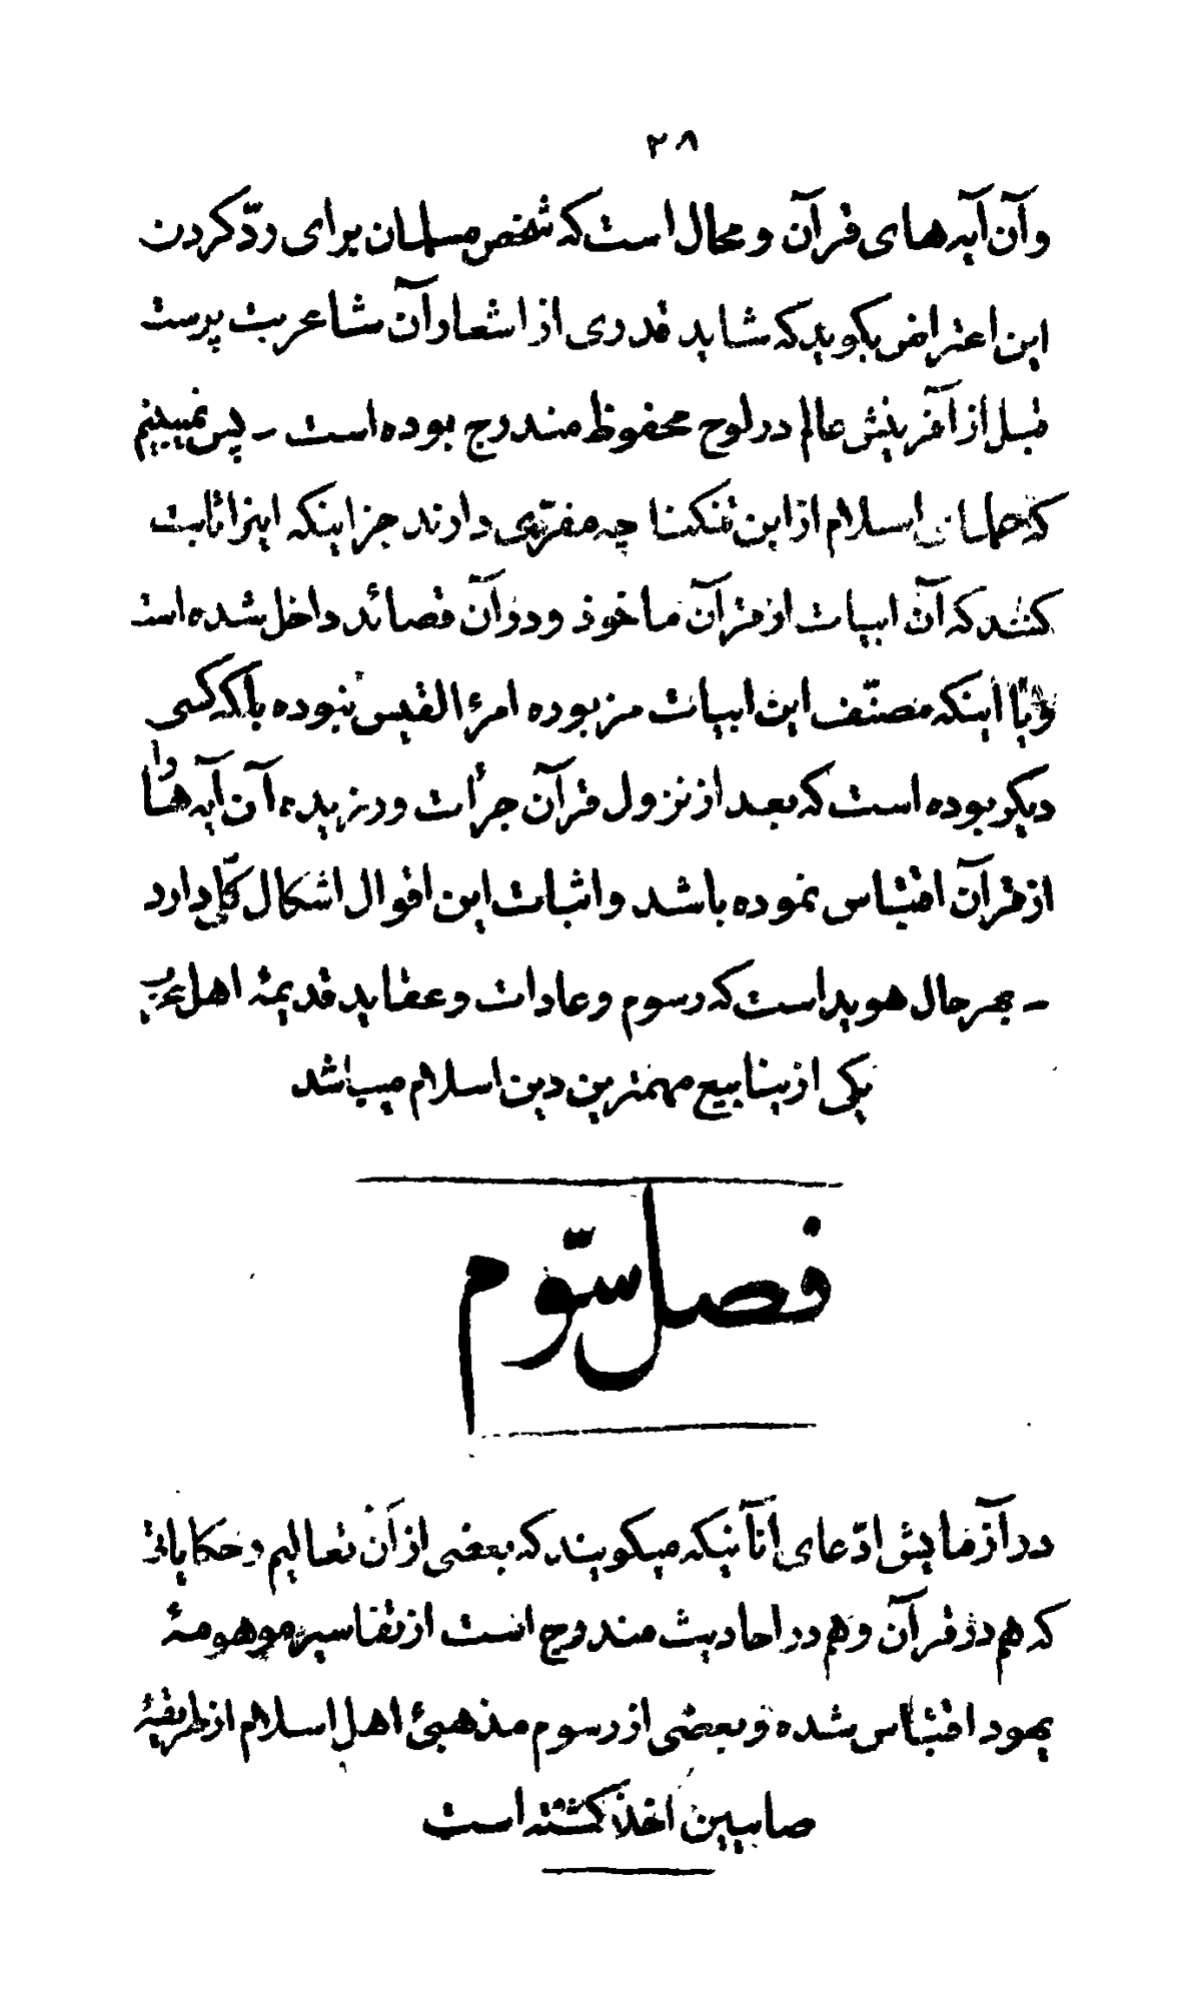 ۲۸
و آن آیه های قرآن و محال است که شخص مسلمان برای ردّ کردن
این اعتراض بگوید که شاید قدری از اشعار آن شاعر بت پرست
قبل از آفرینش عالم در لوح محفوظ مندرج بوده است - پس نمیبینم
که علمای اسلام از این تنکنا چه مفرّی دارند جز اینکه اینرا ثابت
کنند که آن ابیات از قرآن ماخوذ و در آن قصائد داخل شده است
و یا اینکه مصنّف این ابیات مزبوره امرءالقیس نبوده بلکه کسی
دیکر بوده است که بعد از نزول قرآن جرأت ورزیده آن آیه ها را
از قرآن اقتباس نموده باشد و اثبات این اقوال اشکال کلّی دارد
- بهر حال هویداست که رسوم و عادات و عقاید قدیمهٔ اهل عرب
یکی از ینابیع مهمترین دین اسلام میباشد
فصل سوّم
در آزمایش ادّعای آنانیکه میکویند که بعضی از آن تعالیم و حکایاتی
که هم در قرآن و هم در احادیث مندرج است از تفاسیر موهومهٔ
یهود اقتباس شده و بعضی از رسوم مذهبیٔ اهل اسلام از طریقهٔ
صابیین اخذ کشته است